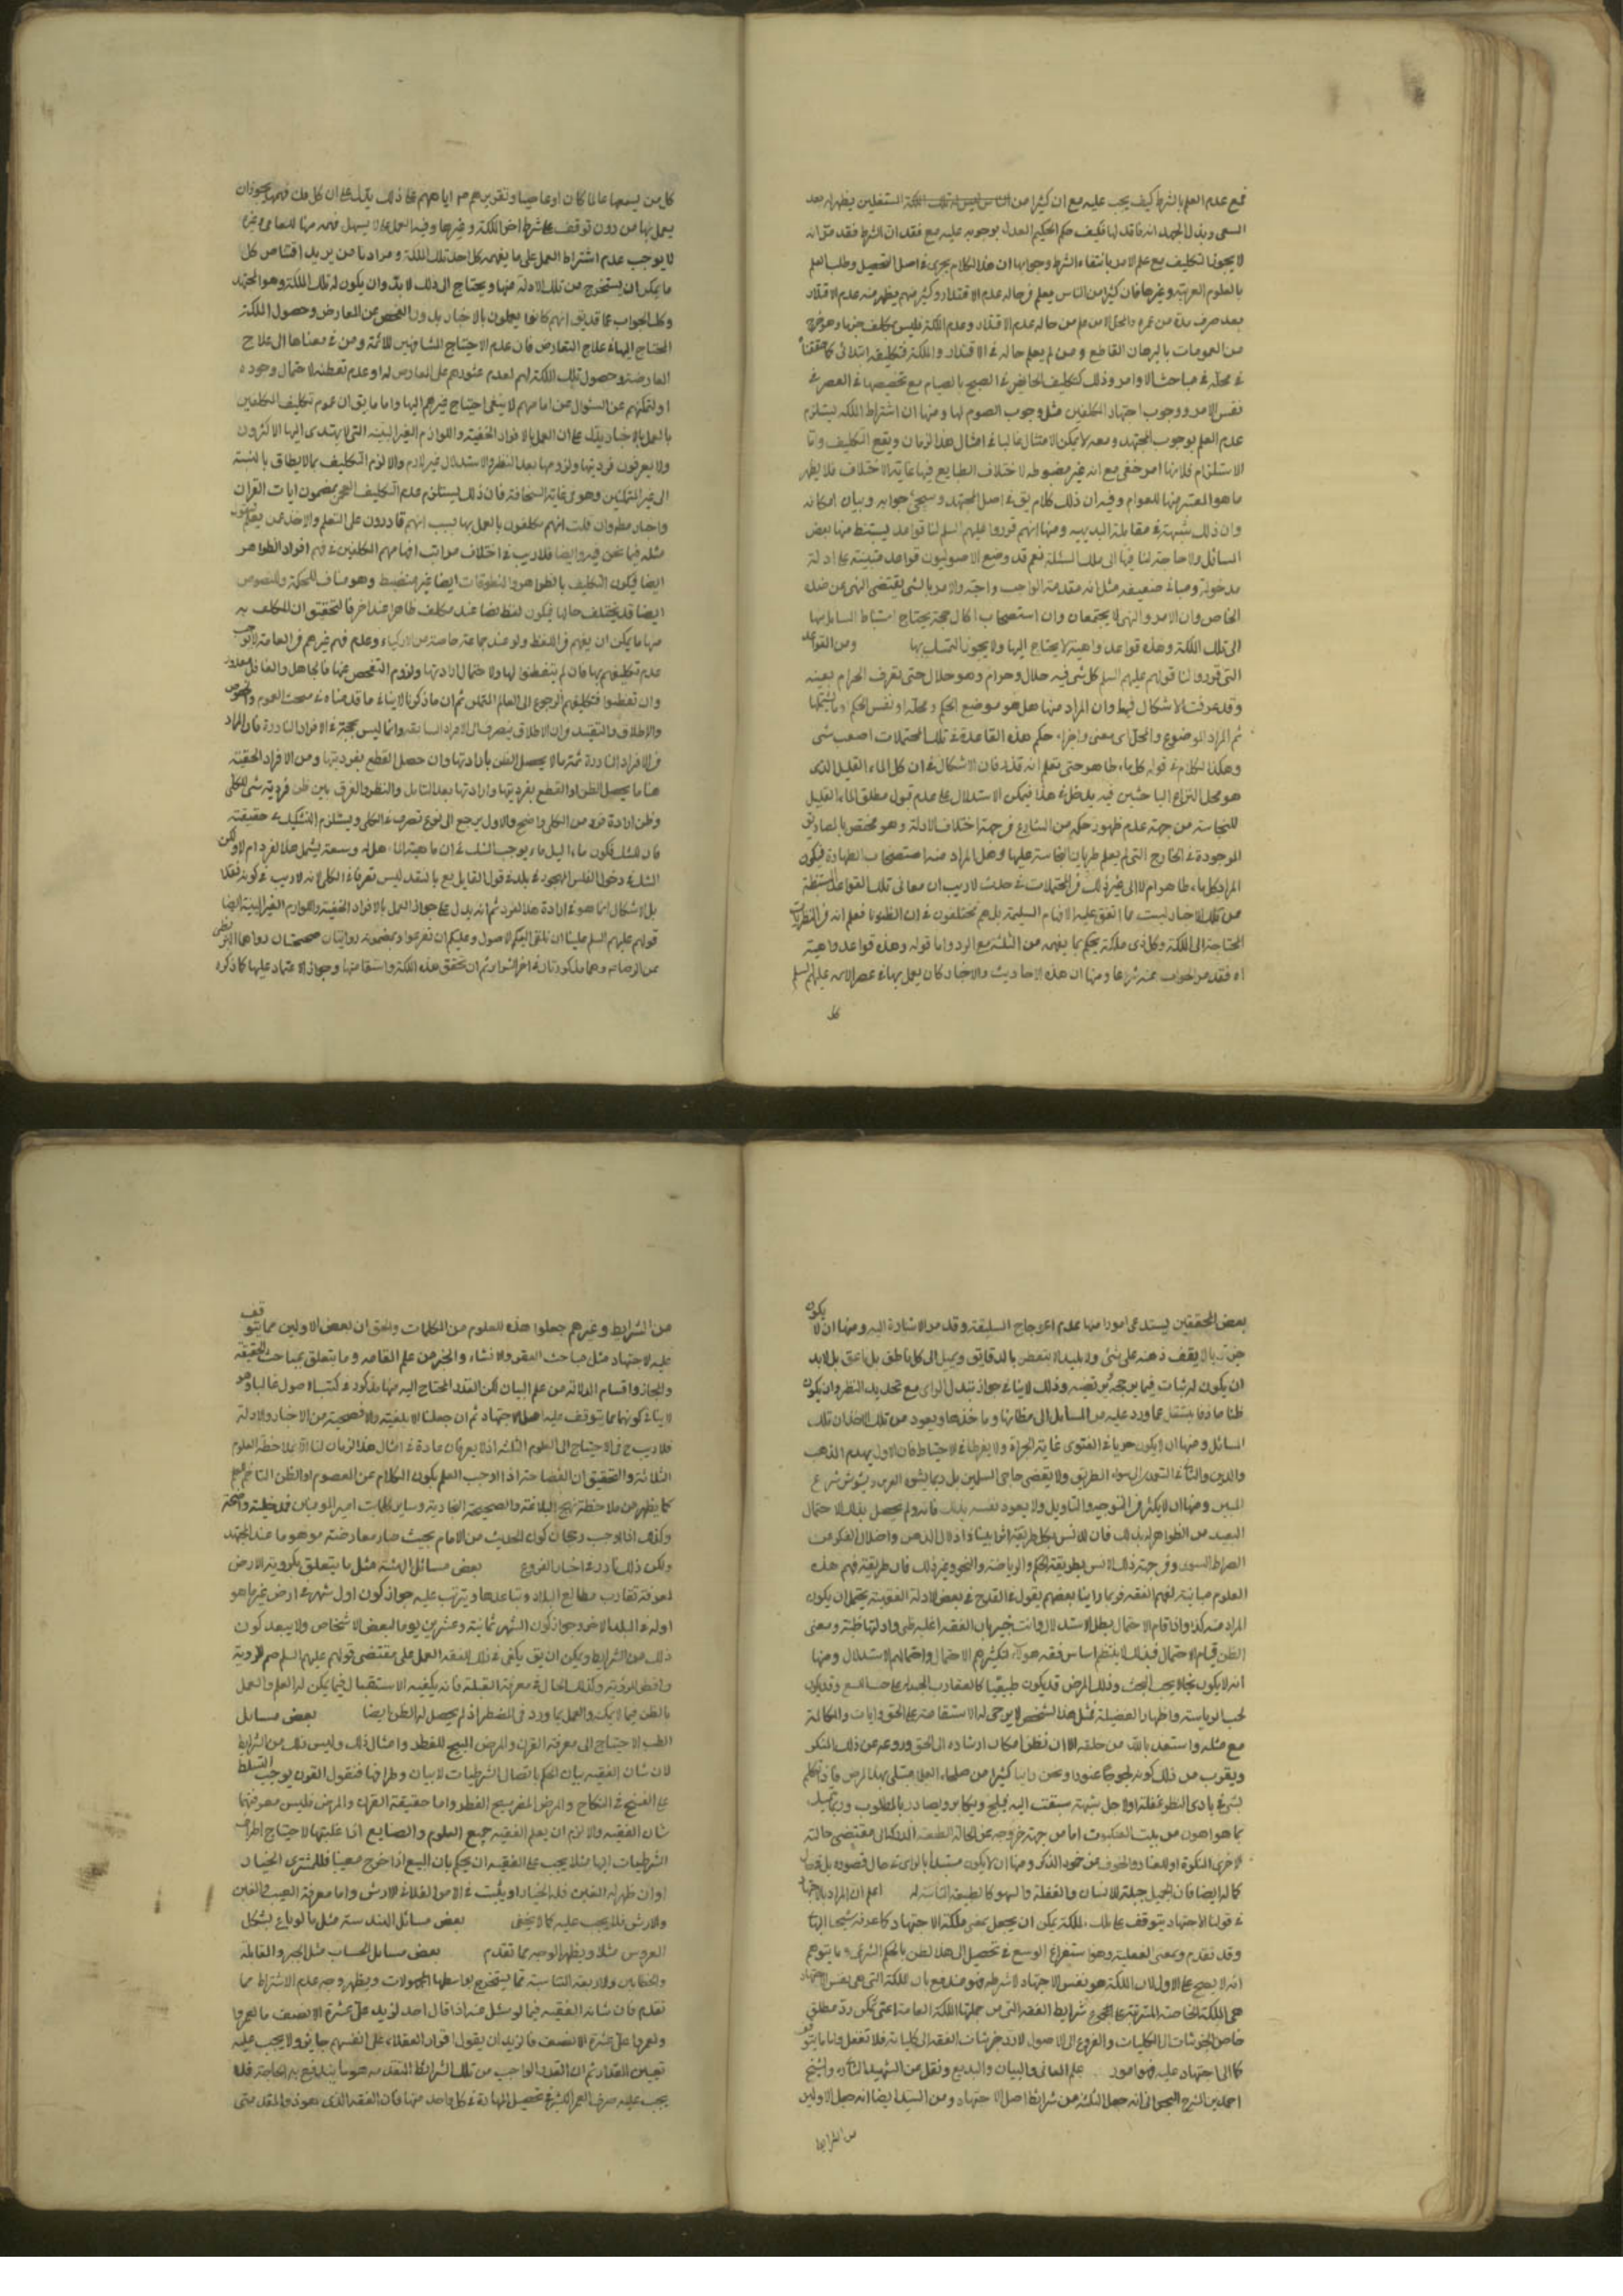 فمع عدم العلم بالشرط كيف يجب عليه مع ان كثيرا من الناس ليس له تلك الملكة المستغلين يظهر له بعد
السعى وبذل الجهد انه فاقد لها فكيف حكم الحكيم العدل بوجوبه عليه مع فقدان الشرط فقد مر انه
لا يجوز التكليف مع علم الامر بانتفاء الشرط وجوابها ان هذا الكلام يجرى فى اصل التحصيل وطلب العلم
بالعلوم العربية وغيرها فان كثيرا من الناس يعلم فى حاله عدم الاقتدار وكثير منهم يظهر منه عدم الاقتدار
بعد صرف مدة من عمره والحل ان من علم من حاله عدم الاقتدار وعدم الملكة فليس بمكلف جزما وهو خرج
من العمومات بالبرهان القاطع ومن لم يعلم حاله فى الاقتدار والملكة فتكليفه ابتلائى كما حققنا
فى محله فى مباحث الاوامر وذلك كتكليف الحائض فى الصبح بالصيام مع تحيضها فى العصر فى
نفس الامر ووجوب اجتهاد المكلفين مثل وجوب الصوم لها ومنها ان اشتراط الملكة يستلزم
عدم العلم بوجود المجتهد ومعه لا يمكن الامتثال غالبا فى امثال هذا الزمان ويقع التكليف واما
الاستلزام فلانها امر خفى مع انه غير مضبوطه لاختلاف الطبايع فيها غاية الاختلاف فلا يظهر
ما هو المعتبر منها للعوام وفيه ان ذلك كلام يق فى اصل المجتهد وسيجئ جوابه وبيان امكانه
وان ذلك شبهة فى مقابلة البديهيه ومنها انهم قرروا عليهم السلم لنا قواعد يستنبط منها بعض
المسائل ولا حاجة لنا فيها الى ملك المسئلة نعم قد وضع الاصوليون قواعد مبتنية على ادلة
مدخولة ومبانى ضعيفه مثل انه مقدمة الواجب واجبة والامر بالشئ يقتضى النهى عن ضده
الخاص وان الامر والنهى لا يجتمعان وان استصحاب الحال حجة يحتاج استنباط المسائل بها
الى تلك الملكة وهذه قواعد واهية لا يحتاج اليها ولا يجوز التمسك بها ومن القواعد
التى قرروا لنا قولهم عليهم السلم كل شئ فيه حلال وحرام وهو حلال حتى تعرف الحرام بعينه
وقد عرفت الاشكال فيها وان المراد منها هل هو موضع الحكم ومحله او نفس الحكم او ما يشملها
ثم المراد بالموضوع والمحل اى معنى واجراء حكم هذه القاعدة فى تلك المحتملات اصعب شئ
وهكذا الكلام فى قوله كل ماء طاهر حتى تعلم انه قذر فان الاشكال فى ان كل الماء القليل الذى
هو محل النزاع الباحثين فيه يدخل فى هذا فيمكن الاستدلال على عدم قبول مطلق الماء القليل
للنجاسة من جهة عدم ظهور حكمه من الشارع من جهة اختلاف الادلة وهو مختص بالمصاديق
الموجودة فى الخارج التى لم يعلم طريان النجاسة عليها وهل المراد منه استصحاب الطهارة فيكون
المراد كل ماء طاهر ام لا الى غير ذلك من المحتملات فى حديث لا ريب ان معانى تلك القواعد المستنبطة
من تلك الاخبار ليست مما اتفق عليه الافهام السليمة بل هم مختلفون فى ان المظنون فعلم انه من النظريات
المحتاجة الى الملكة وكل ذى ملكة يحكم بما يفهمه من الثلثة مع الرد واما قوله وهذه قواعد واهية
اه فقد مر الجواب عنه مرارا ومنها ان هذه الاحاديث والاخبار كان يعمل بها فى عصر الائمه عليهم السلم
كل
كل من يسمعها عالما كان او عاميا وتقريرهم اياهم على ذلك يدل على ان كل من فهمها يجوز ان
يعمل بها من دون توقف على شرط اخر الملكة وغيرها وفيه ان العمل بما لا يسهل فهمه منها للعامى وغيره
لا يوجب عدم اشتراط العمل على ما يفهمه كل احد بتلك الملكة ومرادنا من يريد اقتناص كل
ما يمكن ان يستخرج من تلك الادلة منها ويحتاج الى ذلك لا بد وان يكون له تلك الملكة وهو المجتهد
وكذا الجواب عما قد يق انهم كانوا يعملون بالاخبار بدون الفحص عن المعارض وحصول الملكة
المحتاج اليها فى علاج التعارض فان عدم الاحتياج المشافهين للائمة ومن فى معناها الى علاج
المعارضة وحصول تلك الملكة لهم لعدم عثورهم على المعارض له او عدم تفطنه لاحتمال وجوده
او لتمكنهم عن السؤال عن امامهم لا ينفى احتياج غيرهم اليها واما ما يق ان عموم تكليف المكلفين
بالعمل بالاخبار يدل على ان العمل بالافراد الخفية واللوازم الغير البينه التى لا يهتدى اليها الاكثرون
ولا يعرفون فرديتها ولزومها بعد النظر والاستدلال غير لازم والا لزم التكليف بما لا يطاق بالنسبة
الى غير المتمكنين وهو فى غاية السخافة فان ذلك يستلزم عدم التكليف العجمى بمضمون ايات القران
واخبار مطم وان قلت انهم مكلفون بالعمل بها بسبب انهم قادرون على التعلم والاخذ عمن يعلم فنقول
مثله فيما نحن فيه وايضا فلا ريب فى اختلاف مراتب افهامهم المكلفين فى فهم افراد الظواهر
ايضا فيكون التكليف بالظواهر والمنطوقات ايضا غير منضبط وهو مناف للحكمة والنصوص
ايضا قد يختلف حالها فيكون لفظ نصا عند مكلف ظاهرا عند اخر فالتحقيق ان المكلف به
مهما ما يمكن ان يفهم من اللفظ ولو عند جماعة خاصة من الاذكياء وعدم فهم غيرهم من العامة لا يوجب
عدم تكليفهم بها فان لم يتفطنوا لها ولا احتمال ارادتها ولزوم التفحص عنها فالجاهل والغافل معذور
وان تفطنوا فتكليفهم الرجوع الى العالم المتمكن ثم ان ما ذكرنا لا ينافى ما قدمناه فى مبحث العموم والخصوص
والاطلاق والتقييد من ان الاطلاق ينصرف الى الافراد الشايعه وانما ليس بحجة فى الافراد النادرة فان المراد
من الافراد النادرة ثمة ما لا يحصل الظن بارادتها وان حصل القطع بفرديتها ومن الافراد الخفية
هنا ما يحصل الظن او القطع بفرديتها وارادتها بعد التامل والنظر والفرق بين ظن فردية شئ للكلى
وظن ارادة فرد من الكلى واضح والاول يرجع الى نوع تصرف فى الكلى ويستلزم التشكيك فى حقيقته
فان الشك فى كون ماء السيل ماء يوجب الشك فى ان ماهيته الماء هل له وسعة يشمل هذا الفرد ام لا ولكن
الشك فى دخول الفلس المهجور فى بلد فى قول القايل بع بالنقد ليس تصرفا فى الكلى لانه لا ريب فى كونه نقدا
بل الاشكال انما هو فى ارادة هذا الفرد ثم انه يدل على جواز العمل بالافراد الخفية واللوازم الغير البينة ايضا
قولهم عليهم السلم علينا ان نلقى اليكم الاصول وعليكم ان تفرعوا وبمضمونه روايتان صحيحتان رواها البزنطى
عن الرضا ع وهما مذكورتان فى اخر السرائر ثم ان تحقق هذه الملكة واستقامتها وجواز الاعتماد عليها كما ذكره
بعض المحققين يستدعى امورا منها عدم اعوجاج السليقة وقد مر الاشارة اليه ومنها ان لا يكون
جربزيا لا يقف ذهنه على شئ ولا بليدا لا يتفطن بالدقايق ويميل الى كل ناطق بل ناعق بل لا بد
ان يكون له ثبات فيما يرجحه ويرتضيه وذلك لا ينافى جواز تبدل الراى مع تجديد النظر وان يكون
فطنا حاذقا ينتقل عما ورد عليه من المسايل الى مظانها وماخذها ويعود من تلك الاخذان تلك
المسائل ومنها ان لا يكون جريا فى الفتوى غاية الجراة ولا يفرط فى الاحتياط فان الاول يهدم المذهب
والدين والثانى لا يهدى الى سواء الطريق ولا يقضى حاجة المسلمين بل ربما يشوه الدين ويشوش شرع
المبين ومنها ان لا يكثر من التوجيه والتاويل ولا يعود نفسه بذلك فانه ربما يحصل بذلك الاحتمال
البعيد من الظواهر له بذلك فان للانس بكل طريقة اثرا بينا فى اذلال الذهن واضلال الفكر عن
الصراط السوى ومن جهة ذلك الانس بطريقة الحكم والرياضة والنحو وغير ذلك فان طريقة فهم هذه
العلوم مباينة لفهم الفقه فربما راينا بعضهم يقول فى القدح فى بعض الادلة الفقهية يحتمل ان يكون
المراد منه كذا واذا قام الاحتمال بطل الاستدلال وانت خبير بان الفقه اغلبه ظنى وادلتها ظنية ومعنى
الظن قيام الاحتمال فبذلك لا ينتظم اساس فقه هؤلاء لتكثيرهم الاحتمال واختلالهم الاستدلال ومنها
انه لا يكون بحاثا يحب البحث وذلك المرض قد يكون طبيعيا كالعقارب المجبولة على اللسع وقد يكون
لحب الرياسة واظهار الفضيلة فمثل هذا الشخص لا يرجى له الاستقامة على الحق واياك والمكالمة
مع مثله واستعذ بالله من خلقه الا ان تظن امكان ارشاده الى الحق وردعه عن ذلك المنكر
ويقرب من ذلك كونه لجوجا عنودا ونحن راينا كثيرا من صلحاء العلماء مبتلى بهذا المرض فاذا تكلم
بشئ فى بادى النظر غفلة او لاجل شبهة سبقت اليه فيلج ويكابر ويصادر بالمطلوب وربما يتمسك
بما هو اهون من بيت العنكبوت اما من جهة خروجه عن الحالة الطبيعية الدراكة الى مقتضى حالته
الاخرى المنكرة او للعناد والخوف من خمود الذكر ومنها ان لا يكون مستبدا بالراى فى حال قصوره بل فى حال
كماله ايضا فان الجهل جبلة للانسان والغفلة والسهو كالطبيعة الثانية له اعلم ان المراد بالاجتهاد
فى قولنا الاجتهاد يتوقف على تلك الملكة يمكن ان يجعل بمعنى ملكة الاجتهاد كما عرفه شيخنا البهائى
وقد تقدم وبمعنى الفعلية وهو استفراغ الوسع فى تحصيل الى هذا الظن بالحكم الشرعى وما يتوهم
انه لا يصح على الاول لان الملكة هو نفس الاجتهاد لا شرطه فهو مندفع بان الملكة التى هى نفس الاجتهاد
هى الملكة الخاصة المترتبة على مجموع شرايط الفقه التى من جملتها الملكة العامة اعنى تمكن رد مطلق
خاص الجزئيات الى الكليات والفروع الى الاصول لا رد جزئيات الفقه الى كلياته فلا تغفل واما ما يتوقف
كمال الاجتهاد عليه فهو امور علم المعانى والبيان والبديع ونقل عن الشهيد الثانى والشيخ
احمد بن المتوج البحرانى انه جعل الثلثة من شرايط اصل الاجتهاد ومن السيد ايضا انه جعل الاولين
من الشرايط
من الشرايط وغيرهم جعلوا هذه العلوم من المكملات والحق ان بعض الاولين مما يتوقف
عليه الاجتهاد مثل مباحث القصر والانشاء والخبر من علم المعانى وما يتعلق بمباحث الحقيقة
والمجاز واقسام الدلالة من علم البيان لكن القدر المحتاج اليه منها مذكور فى كتب الاصول غالبا وهو
لا ينافى كونهما مما يتوقف عليه اصل الاجتهاد ثم ان جعلنا الابلغية والافصحية من الاخبار والادلة
فلا ريب ح فى الاحتياج الى العلوم الثلثه اذ لا يعرفان عادة فى امثال هذا الزمان لنا الا بملاحظة العلوم
الثلاثة والتحقيق ان الفصاحة اذا اوجب العلم بكون الكلام عن المعصوم او الظن المتاخم للعلم
كما يظهر من ملاحظة نهج البلاغة والصحيفة السجادية وساير كلمات امير المومنين فى خطبه واضحة
وكذلك اذا اوجب رجحان كون الحديث من الامام بحيث صار معارضته موهوما عند المجتهد
ولكن ذلك نادر فى اخبار الفروع بعض مسائل الهيئة مثل ما يتعلق بكروية الارض
لمعرفة تقارب مطالع البلاد وتباعدها ويترتب عليه جواز كون اول شهر فى ارض غير ما هو
اوله فى البلد الاخر وجواز كون الشهر ثمانية وعشرين يوما لبعض الاشخاص ولا يبعد كون
ذلك من الشرايط ويمكن ان يق يكفى فى ذلك الفقه العمل على مقتضى قولهم عليهم السلم صم للروية
وافطر للروية وكذلك الحال فى معرفة القبلة فانه يكفيه الاستقبال فيما يمكن له العلم والعمل
بالظن فيما لا يمكنه والعمل بما ورد فى المضطر اذا لم يحصل له الظن ايضا بعض مسايل
الطب لاحتياج الى معرفة القرن والمرض المبيح للفطر وامثال ذلك وليس ذلك من الشرايط
لان شان الفقيه بيان الحكم باتصال الشرطيات لا بيان وطرفيها فنقول القرن يوجب التسلط
على الفسخ فى النكاح والمرض المضر يبيح الفطر واما حقيقة القرن والمرض فليس معرفتهما
شان الفقيه والا لزم ان يعلم الفقيه جميع العلوم والصنايع اذا غلبتها الاحتياج اطراف
الشرطيات اليها مثلا يجب على الفقيه ان يحكم بان المبيع اذا خرج معيبا فللمشترى الخيار
او ان ظهر له الغبن فله الخيار او يثبت فى الامر الفلانى الارش واما معرفة العيب والغبن
والارش فلا يجب عليه كما لا يخفى بعض مسائل الهندسة مثل ما لو باع بشكل
العروس مثلا ويظهر الوجه بما تقدم بعض مسايل الحساب مثل الجبر والمقابلة
والخطاين والاربعة المتناسبة مما يستخرج بواسطتها المجهولات ويظهر وجه عدم الاشتراط مما
تقدم فان شان الفقيه فيما لو سئل عنه اذا قال احد لزيد على عشرة الا نصف ما لعمرو
ولعمرو على عشرة الا نصف ما لزيد ان يقول اقرار العقلاء على انفسهم جايز ولا يجب عليه
تعيين المقدار ثم ان القدر الواجب من تلك الشرايط المتقدمه هو ما يندفع به الحاجة فلا
يجب عليه صرف العمر الكثير فى تحصيل المهارة فى كل واحد منها فان الفقه الذى هو ذو المقدمة حتى